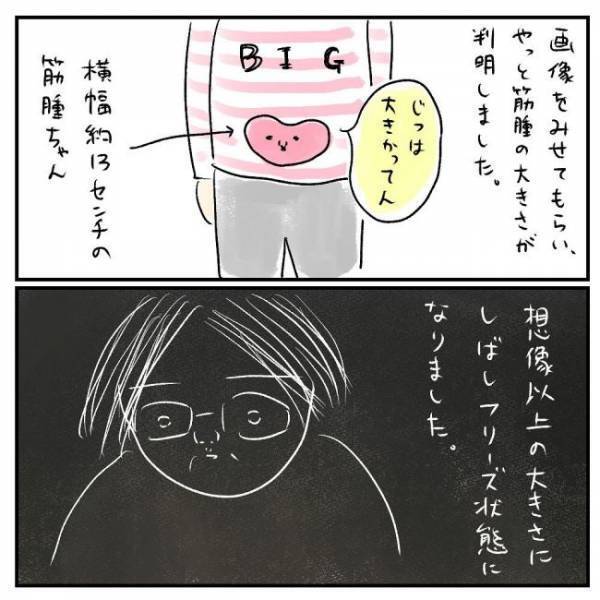 画像をみせてもらい、
やっと筋腫の大きさが
判明しました。
BIG
じつは
大きかってん
横幅約13センチの
筋腫ちゃん
想像以上の大きさに
しばしフリーズ状態に
なりました。